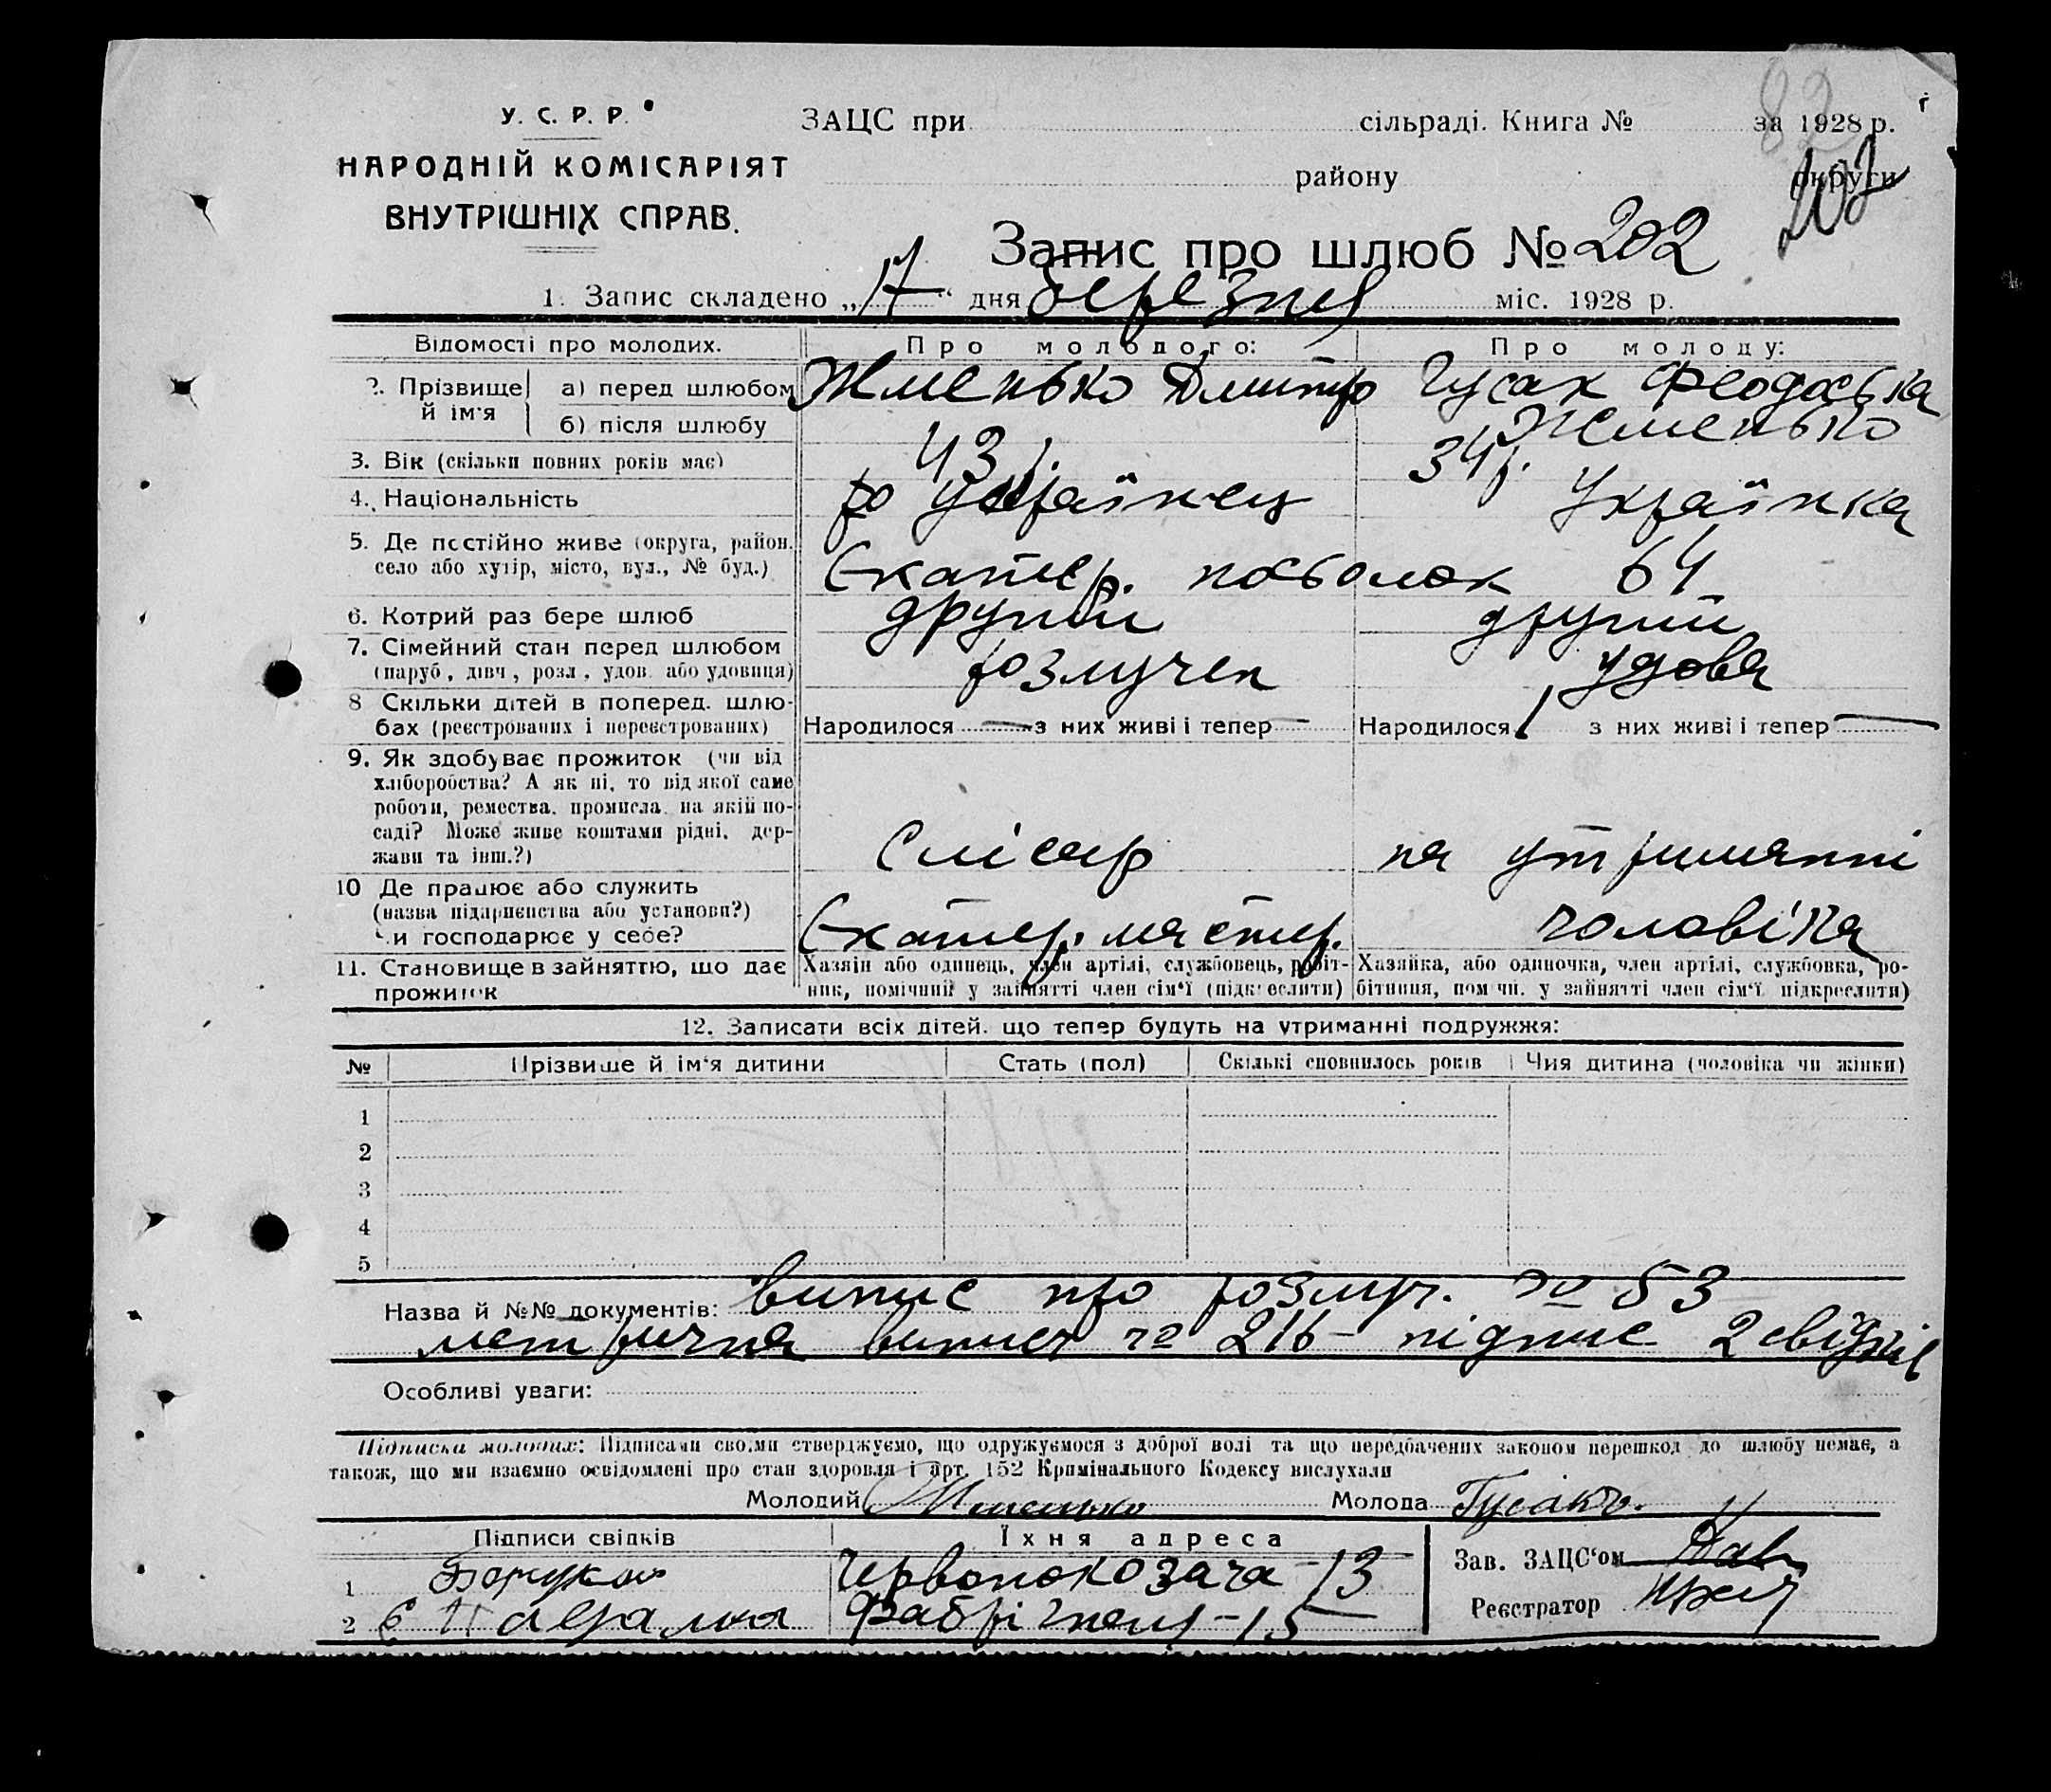 82
У. С. Р. Р.
НАРОДНІЙ КОМІСАРІЯТ
ВНУТРІШНІХ СПРАВ.
ЗАЦС при сільраді. Книга № за 1928 р.
району округи
203
Запис про шлюб № 202
1. Запис складено „17“ дня березня міс. 1928 р.
Відомості про молодих. Про молодого: Про молоду:
2. Прізвище й ім'я а) перед шлюбом Жменько Дмитро Гусак Феодоська
б) після шлюбу Жменько
3. Вік (скільки повних років має) 43 р. 34 р.
4. Національність українец Українка
5. Де постійно живе (округа, район,
село або хутір, місто, вул., № буд.) Екатер. посьолок 64
6. Котрий раз бере шлюб другий другий
7. Сімейний стан перед шлюбом
(паруб., дівч., розл., удов. або удовиця) розлучен удова
8 Скільки дітей в поперед. шлю-
бах (реєстрованих і нереєстрованих) Народилося — з них живі і тепер — Народилося 1 з них живі і тепер —
9. Як здобуває прожиток (чи від
хліборобства? А як ні, то від якої саме
роботи, ремества, промисла, на якій по-
саді? Може живе коштами рідні, дер-
жави та інш.?) Слісар на утриманні
10 Де працює або служить
(назва підприємства або установи?)
Чи господарює у себе? Екатер. мастер. чоловіка
11. Становище в зайняттю, що дає
прожиток
Хазяїн або одинець, член артілі, службовець, робіт-
ник, помічний у зайнятті член сім'ї (підкреслити)
Хазяйка, або одиночка, член артілі, службовка, ро-
бітниця, поміч. у зайнятті член сім'ї підкреслити)
12. Записати всіх дітей, що тепер будуть на утриманні подружжя:
№ Прізвище й ім'я дитини Стать (пол) Скількі сповнилось років Чия дитина (чоловіка чи жінки)
1
2
3
4
5
Назва й №№ документів: випис про розлуч. № 53
метрична випись № 216 – підпис 2 свідків
Особливі уваги:
Підписка молодих: Підписами своїми стверджуємо, що одружуємося з доброї волі та що передбачених законом перешкод до шлюбу немає, а
також, що ми взаємно освідомлені про стан здоровля і арт. 152 Кримінального Кодексу вислухали
Молодий Жменько Молода Гусакъ.
Підписи свідків Їхня адреса
1 Червонокозача – 13
2 Фабрічная – 15
Зав. ЗАЦС'ом
Реєстратор